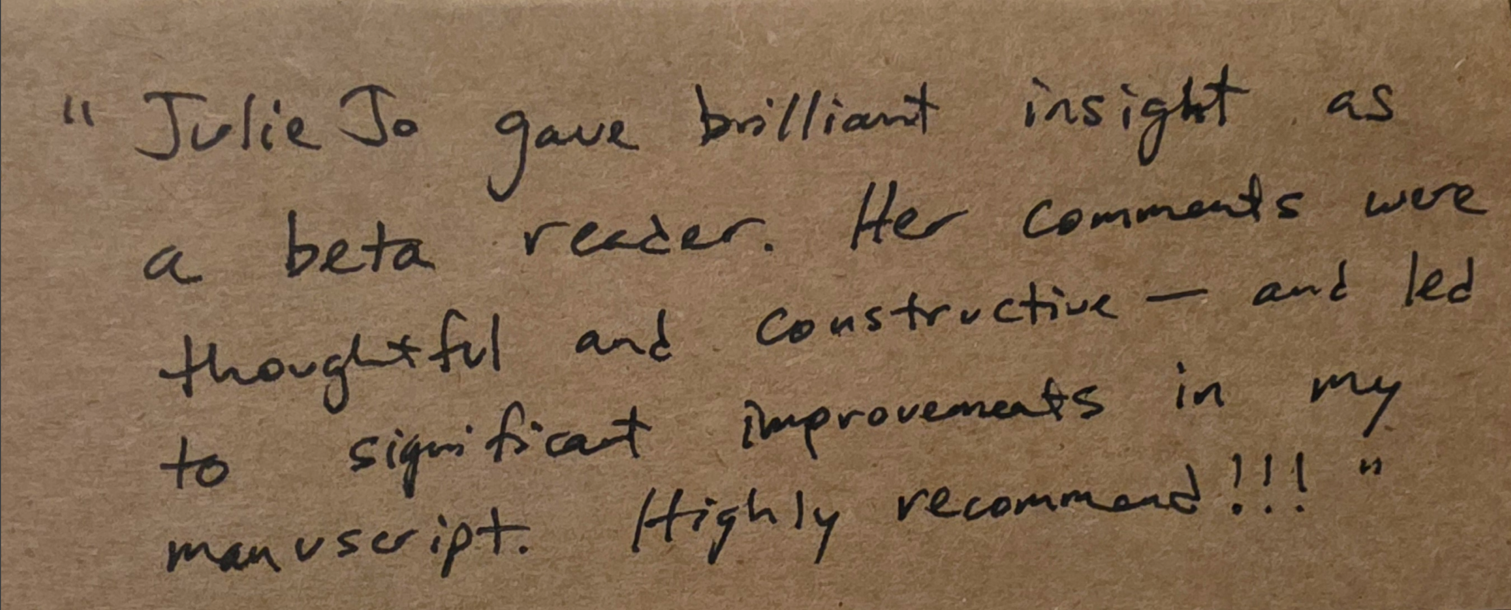 " Julie Jo gave brilliant insight as
a beta reader. Her comments were
thoughtful and constructive — and led
to significant improvements in my
manuscript. Highly recommend!!! "